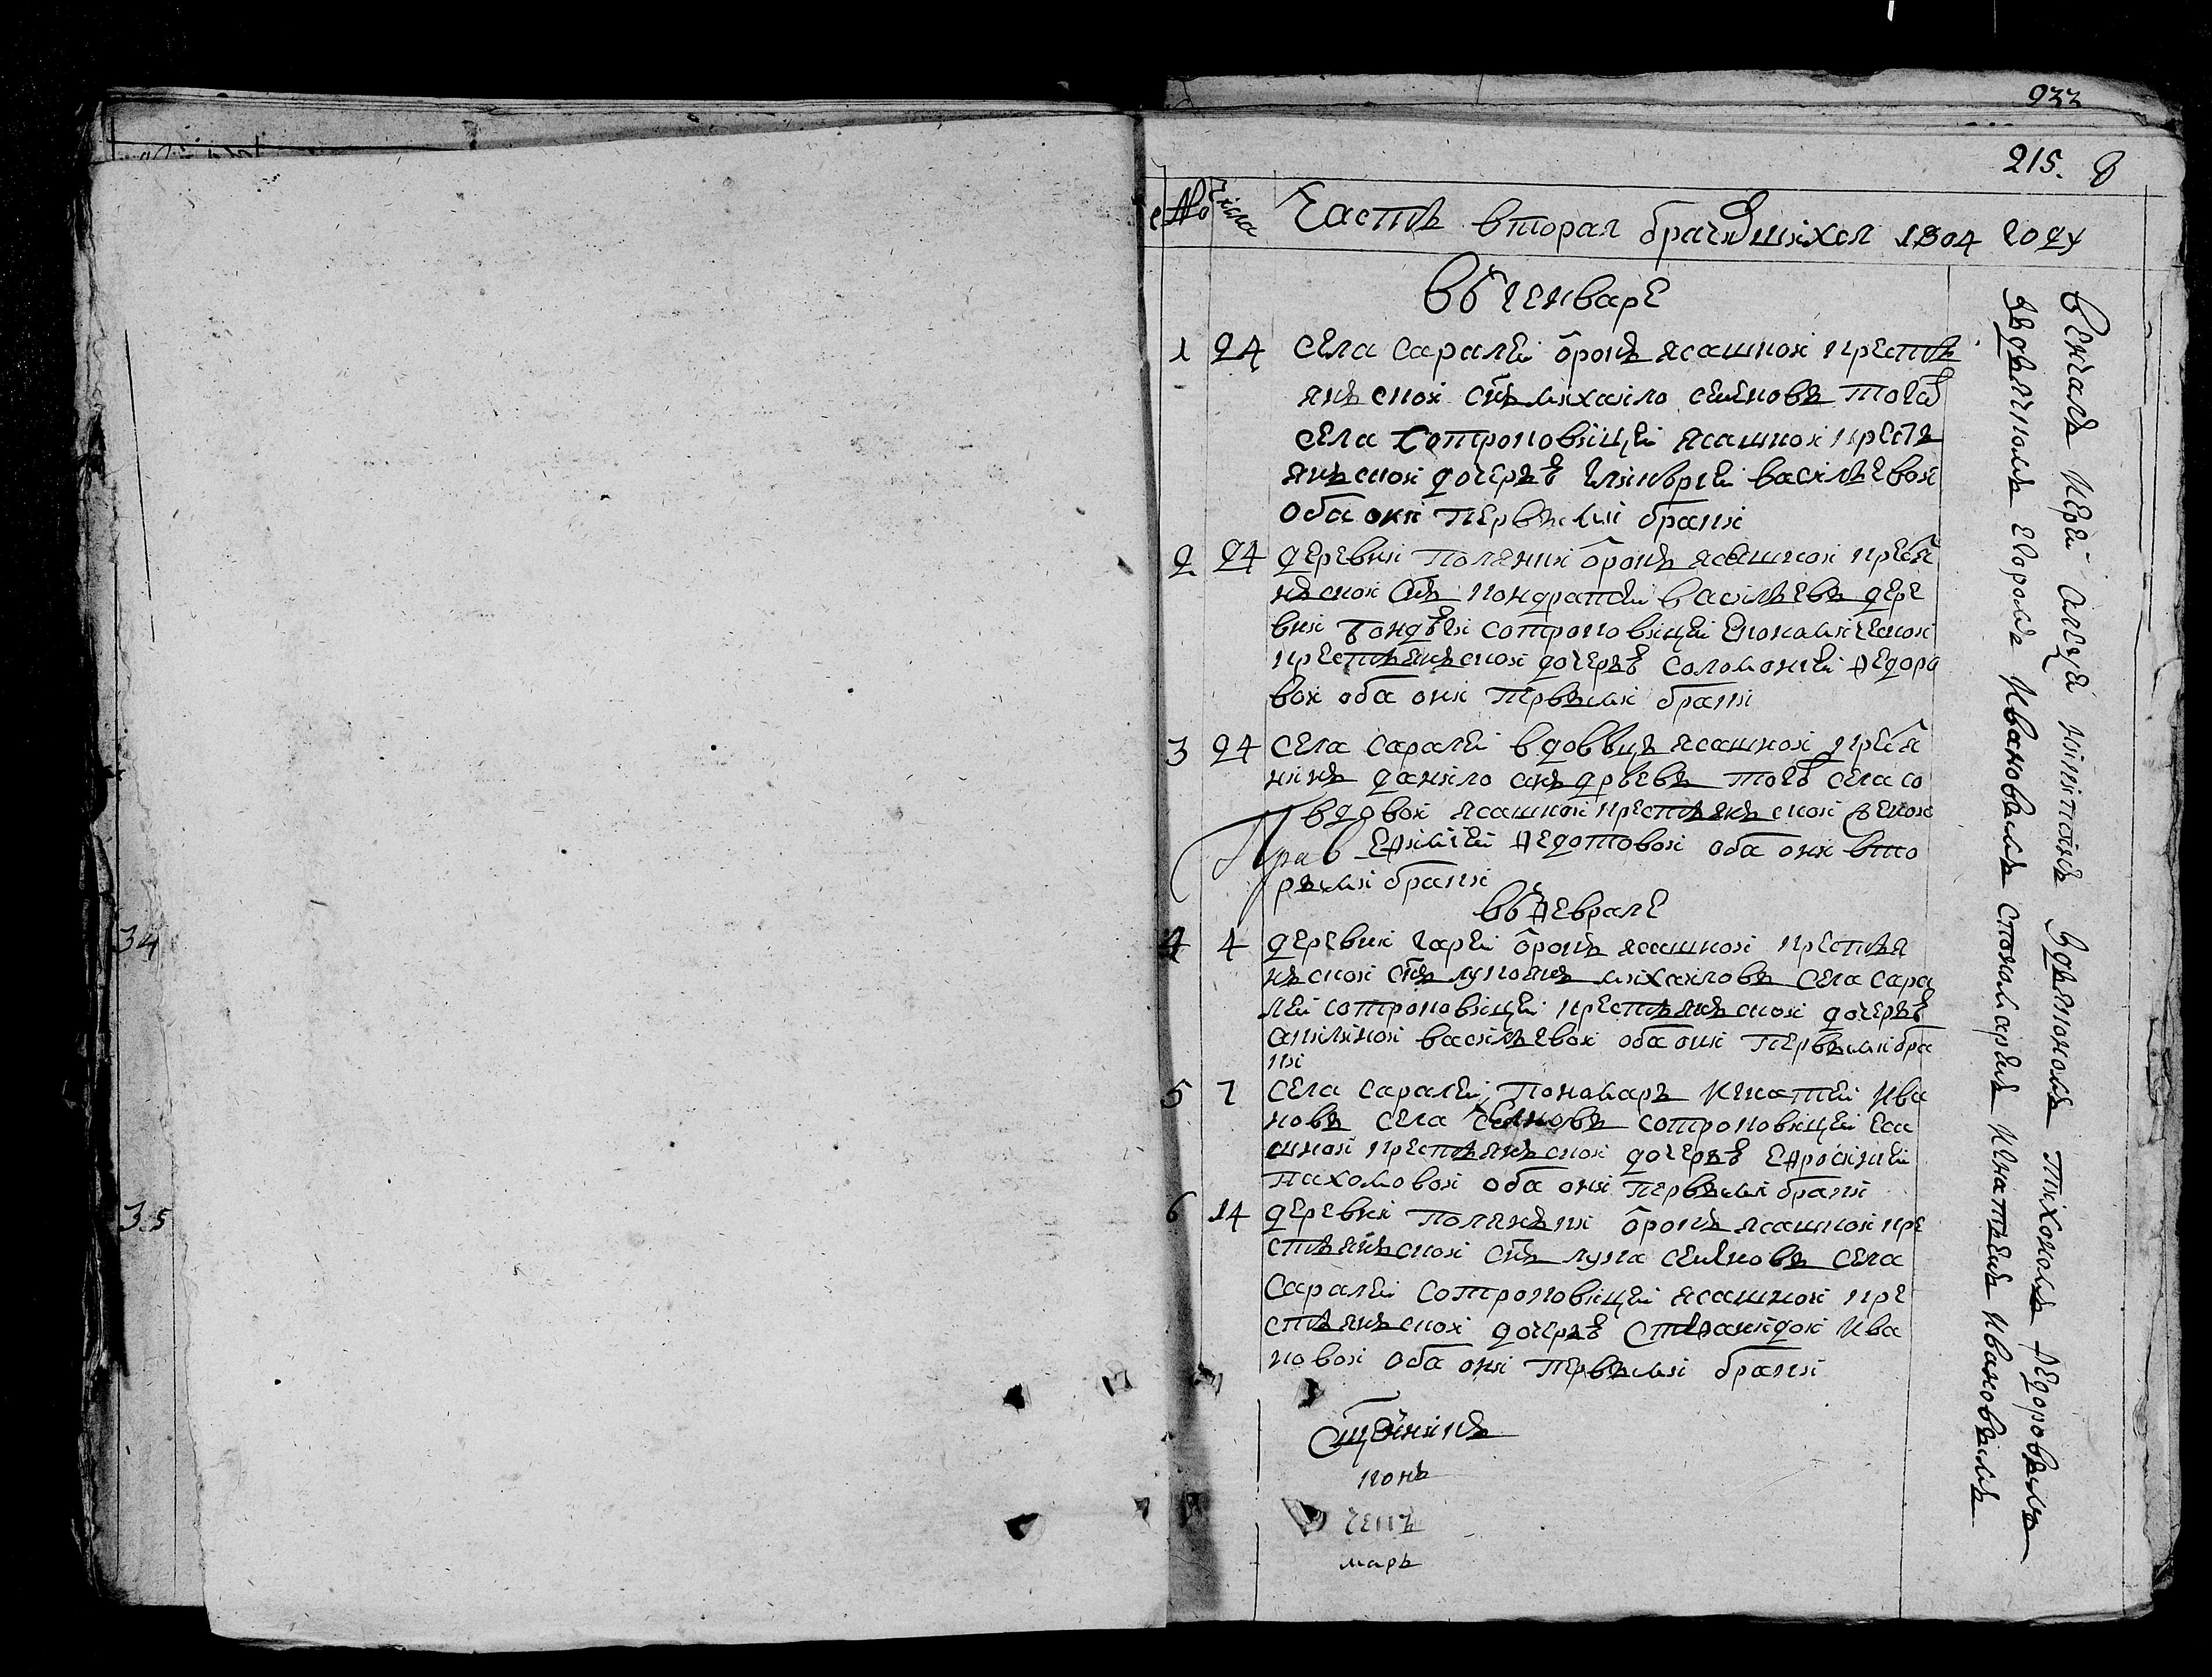 933
215.
№ Числа Часть вторая брачившихся 1804 году
Въ генваре
1 24 Села саралей отрокъ ясашной кресть
янской снъ михаило семеновъ того
села сотроковицей ясашной кресть
янской дочерью гликерией василевой
оба они первыми браки
2 24 деревни полянки отрокъ ясашной крестя
нской снъ кондратей василевъ дере
вни бондюги сотроковицей економической
крестьянской дочерью соломонией федоро
вой оба они первыми браки
3 24 Села саралей вдовецъ ясашной крестя
нинъ данило андреевъ того села со
вдовой ясашной крестьянской женой
ефимией федотовой оба они вто
рыми браки
въ феврале
4 4 деревни гарей отрокъ ясашной крестья
нской снъ лукоянъ михаиловъ села сара
лей сотроковицей крестьянской дочерью
акилиной василевой оба они первыми бра
ки
5 7 Села саралей пономарь игнатей ива
новъ села сотроковицей яса
шной крестьянской дочерью ефросинией
пахомовой оба они первыми браки
6 14 деревни полянки отрокъ ясашной кре
стьянской снъ лука семеновъ села
саралей сотроковицей ясашной кре
стьянской дочерью степанидой ива
новой оба они первыми браки
Венчалъ иерей алексей никитинъ здьякономъ тихономъ федоровымъ
здьячкомъ егоромъ ивановымъ спономаремъ игнатьемъ ивановымъ
34
35